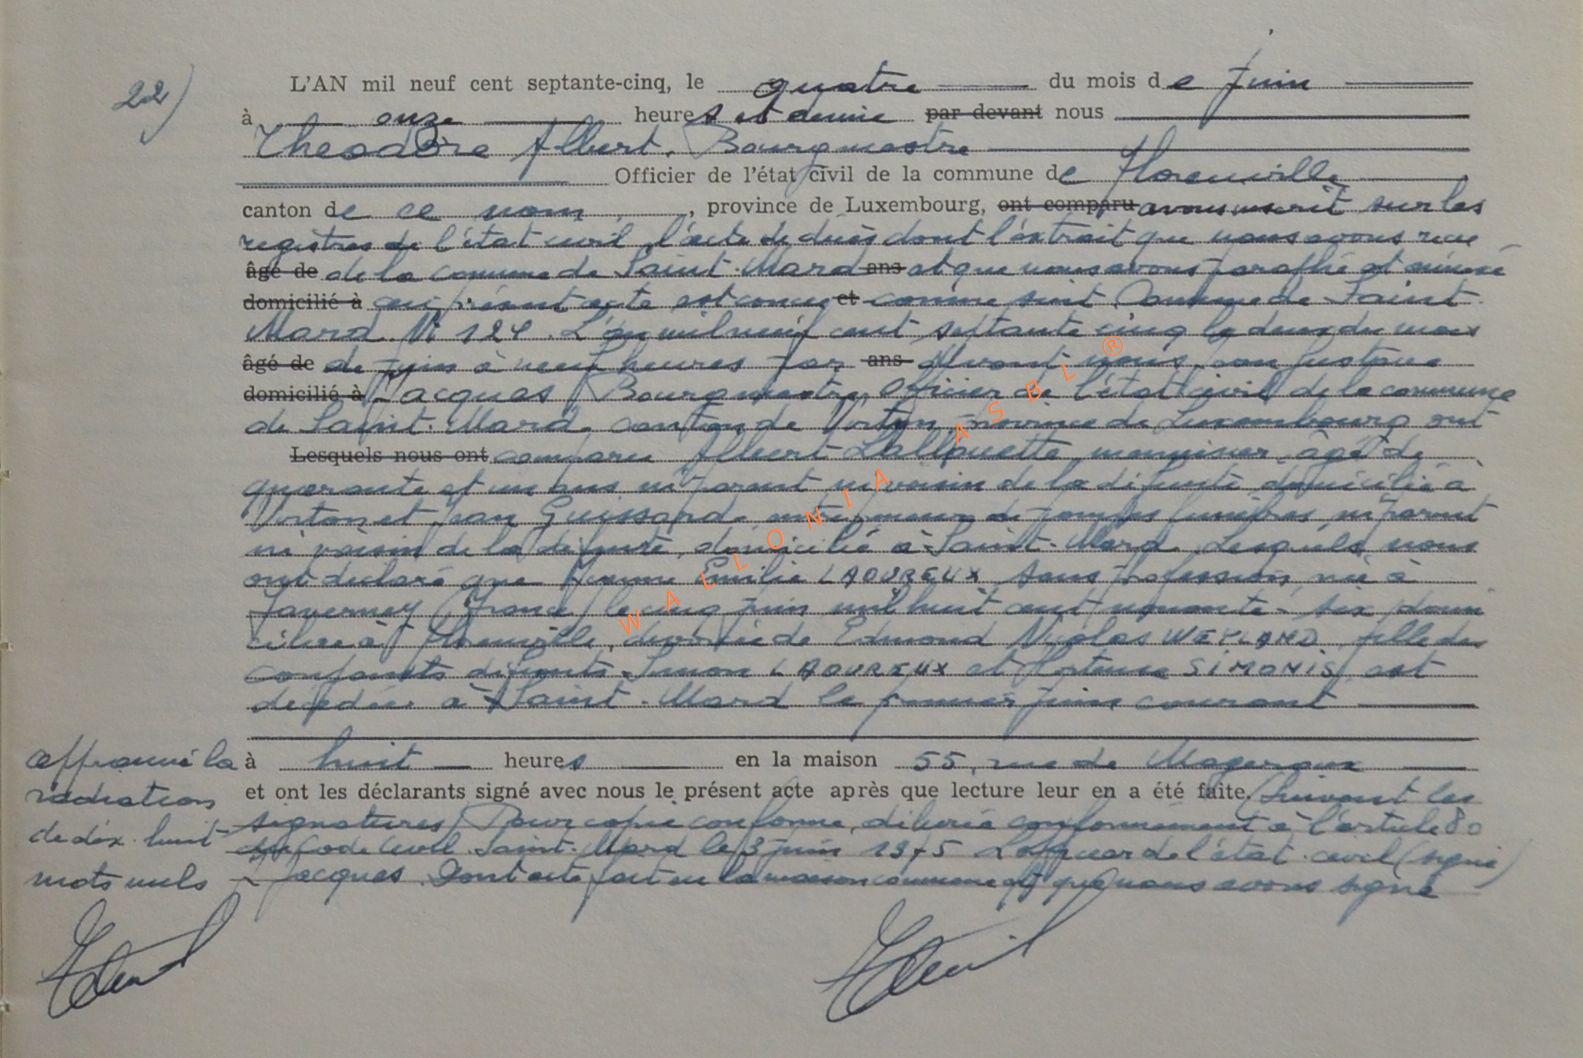 22)
L'AN mil neuf cent septante-cinq, le quatre du mois de Juin
à onze heures et demie par devant nous
Théodore Albert, Bourgmestre
Officier de l'état civil de la commune de Florenville
canton de ce nom, province de Luxembourg, ont comparu avons inscrit sur les
registres de l'état civil, l'acte de décès dont l'extrait que nous avons reçu
âgé de de la commune de Saint-Mard ans et que nous avons paraphé et annexé
domicilié à au présent acte est conçu et comme suit Commune de Saint-
Mard. N° 124. L'an mil neuf cent septante cinq le deux du mois
âgé de de juin à neuf heures ans Avant nous,
domicilié à Jacques Bourgmestre Officier de l'état civil de la commune
de Saint-Mard, canton de Virton, province de Luxembourg ont
Lesquels nous ont comparu Albert Lallouette, menuisier, âgé de
quarante et un ans ni parent ni voisin de la défunte domicilié à
Virton et Jean Guissard, entrepreneur de pompes funèbres, ni parent
ni voisin de la défunte, domicilié à Saint-Mard. Lesquels nous
ont déclaré que Emilie LAOUREUX sans profession, née à
Faverney (France) le cinq juin mil huit cent nonante-six domi
ciliée à Florenville, divorcée de Edmond Nicolas WEYLAND, fille des
conjoints défunts Simon LAOUREUX et Hortense SIMONIS, est
décédée à Saint-Mard le premier juin courant
à huit heures en la maison 55, rue de Mageroux
et ont les déclarants signé avec nous le présent acte après que lecture leur en a été faite. (Suivent les
signatures) Pour copie conforme, délivrée conformément à l'article 80
du Code Civil. Saint-Mard le 3 juin 1975 L'officier de l'état civil (signé)
Jacques. Dont acte fait en la maison commune et que nous avons signé
approuvé la
radiation
de dix-huit
mots nuls
WALLONIA ASBL ®